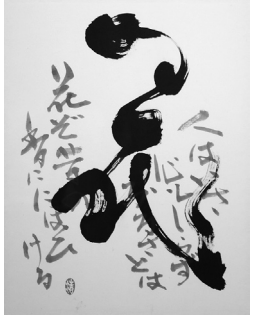 人はいさ
心もしらず
ふるさとは
花ぞ昔の
香ににほひ
ける